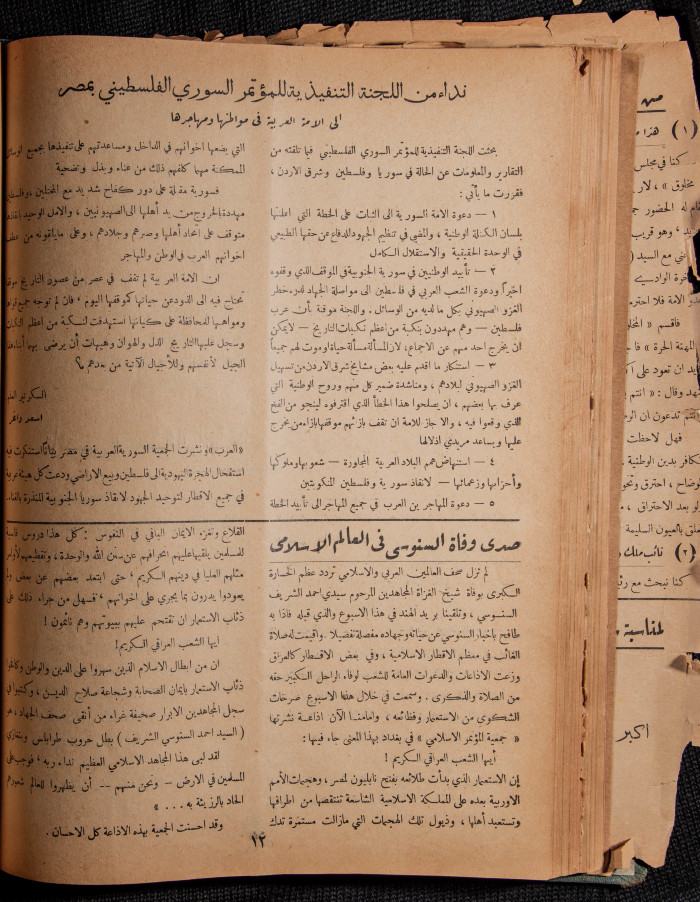 نداء من اللجنة التنفيذية للمؤتمر السوري الفلسطيني بمصر
الى الامة العربية في مواطنها ومهاجرها
بحثت اللجنة التنفيذية للمؤتمر السوري الفلسطيني فيا تلقته من
التقارير والمعلومات عن الحالة في سوريا وفلسطين وشرق الاردن ،
فقررت ما يأتي :
١ — دعوة الامة السورية الى الثبات على الخطة التي اعلنتها
بلسان الكتلة الوطنية ، والمضي في تنظيم الجهود للدفاع عن حقها الطبيعي
في الوحدة الحقيقية والاستقلال الكامل
٢ — تأييد الوطنيين في سورية الجنوبية في الموقف الذي وقفوه
اخيراً ودعوة الشعب العربي في فلسطين الى مواصلة الجهاد لدرء خطر
الغزو الصهيوني بكل ما لديه من الوسائل . واللجنة موقنة بأن عرب
فلسطين — وهم مهددون بنكبة من أعظم نكبات التاريخ — لا يمكن
ان يخرج احد منهم عن الاجماع، لان المسألة مسألة حياة او موت لهم جميعاً
٣ — استنكار ما اقدم عليه بعض مشايخ شرق الاردن من تسهيل
الغزو الصهيوني لبلادهم ، ومناشدة ضمير كل منهم وروح الوطنية التي
عرف بها بعضهم ، ان يصلحوا هذا الخطأ الذي اقترفوه لينجو من الفخ
الذي وقعوا فيه ، والا جاز للامة ان تقف بازئهم موقفها بازاء من يخرج
عليها ويساعد مريدي اذلالها
٤ — استنهاض همم البلاد العربية المجاورة — شعوبها وملوكها
وأحزابها وزعمائها — لانقاذ سورية وفلسطين المنكوبتين
٥ — دعوة المهاجرين العرب في جميع المهاجر الى تأييد الخطة
التي يضعها اخوانهم في الداخل ومساعدتهم على تنفيذها بجميع الوسائل
الممكنة مهما كلفهم ذلك من عناء وبذل وتضحية
فسورية مقبلة على دور كفاح شديد مع المحتلين ، وفلسطين
مهددة بالخروج من يد أهلها الى الصهيونيين ، والامل الوحيد بانقاذها
متوقف على اتحاد أهلها وصبرهم وجلادهم ، وعلى ما يلقونه من عطف
اخوانهم العرب في الوطن والمهاجر
ان الامة العربية لم تقف في عصر من عصور التاريخ موقفاً
تحتاج فيه الى الذود عن حياتها كموقفها اليوم ، فان لم توجه جميع قواها
ومواهبها للمحافظة على كيانها استهدفت لنكبة من أعظم النكبات
وسجل عليها التاريخ الذل والهوان وهيهات أن يرضى بهما أبناء هذا
الجيل لأنفسهم وللأجيال الآتية من بعدهم ؟
السكرتير العام
اسعد داغر
«العرب» ونشرت الجمعية السورية العربية في مصر بياناً استنكرت فيه
استفحال الهجرة اليهودية الى فلسطين وبيع الاراضي ودعت كل هيئة عربية
في جميع الاقطار لتوحيد الجهود لانقاذ سوريا الجنوبية المنذرة بالفناء
صدى وفاة السنوسي في العالم الاسلامي
لم تزل صحف العالمين العربي والاسلامي تردد عظم الخسارة
الكبرى بوفاة شيخ الغزاة المجاهدين المرحوم سيدي احمد الشريف
السنوسي ، وتلقينا بريد الهند في هذا الاسبوع والذي قبله فاذا به
طافح باخبار السنوسي عن حياته وجهاده مفصلة تفصيلا . واقيمت له صلاة
الغائب في معظم الاقطار الاسلامية ، وفي بعض الاقطار كالعراق
وزعت الاذاعات والدعوات العامة للشعب لوفاء الراحل الكبير حقه
من الصلاة والذكرى . وسمعت في خلال هذا الاسبوع صرخات
الشكوى من الاستعمار وفظائعه ، وامامنا الآن اذاعة نشرتها
« جمعية المؤتمر الاسلامي » في بغداد بهذا المعنى جاء فيها :
أيها الشعب العراقي الكريم !
إن الاستعمار الذي بدأت طلائعه بفتح نابليون لمصر ، وهجمات الأمم
الاوربية بعده على المملكة الاسلامية الشاسعة تنتقصها من اطرافها
وتستعبد أهلها ، وذيول تلك الهجمات التي مازالت مستمرة تدك
القلاع وتغزو الايمان الباقي في النفوس : كل هذا دروس قاسية
للمسلمين يلقيها عليهم انحرافهم عن سنن الله والوحدة ، وتقطيعهم لأوامر
مثلهم العليا في دينهم الكريم ، حتى ابتعد بعضهم عن بعض ولم
يعودوا يدرون بما يجري على اخوانهم ، فسهل من جراء ذلك على
ذئاب الاستعمار ان تقتحم عليهم بيوتهم وهم نائمون !
أيها الشعب العراقي الكريم !
ان من ابطال الاسلام الذين سهروا على الدين والوطن وكافحوا
ذئاب الاستعمار بايمان الصحابة وشجاعة صلاح الدين ، وكتبوا في
سجل المجاهدين الابرار صحيفة غراء من أنقى صحف الجهاد ، هو
( السيد احمد السنوسي الشريف ) بطل حروب طرابلس وبنغازي
لقد لبى هذا المجاهد الاسلامي العظيم نداء ربه ، فوجب على
المسلمين في الارض — ونحن منهم — أن يظهروا للعالم شعورهم
الحاد بالرزيئة به ... »
وقد احسنت الجمعية بهذه الاذاعة كل الاحسان .
١٢
(١) هذا
كنا في مجلس
الحضور
فهل لاحظت
(٢) نائب ملك
كنا نبحث مع
لمناسبة
اكبر